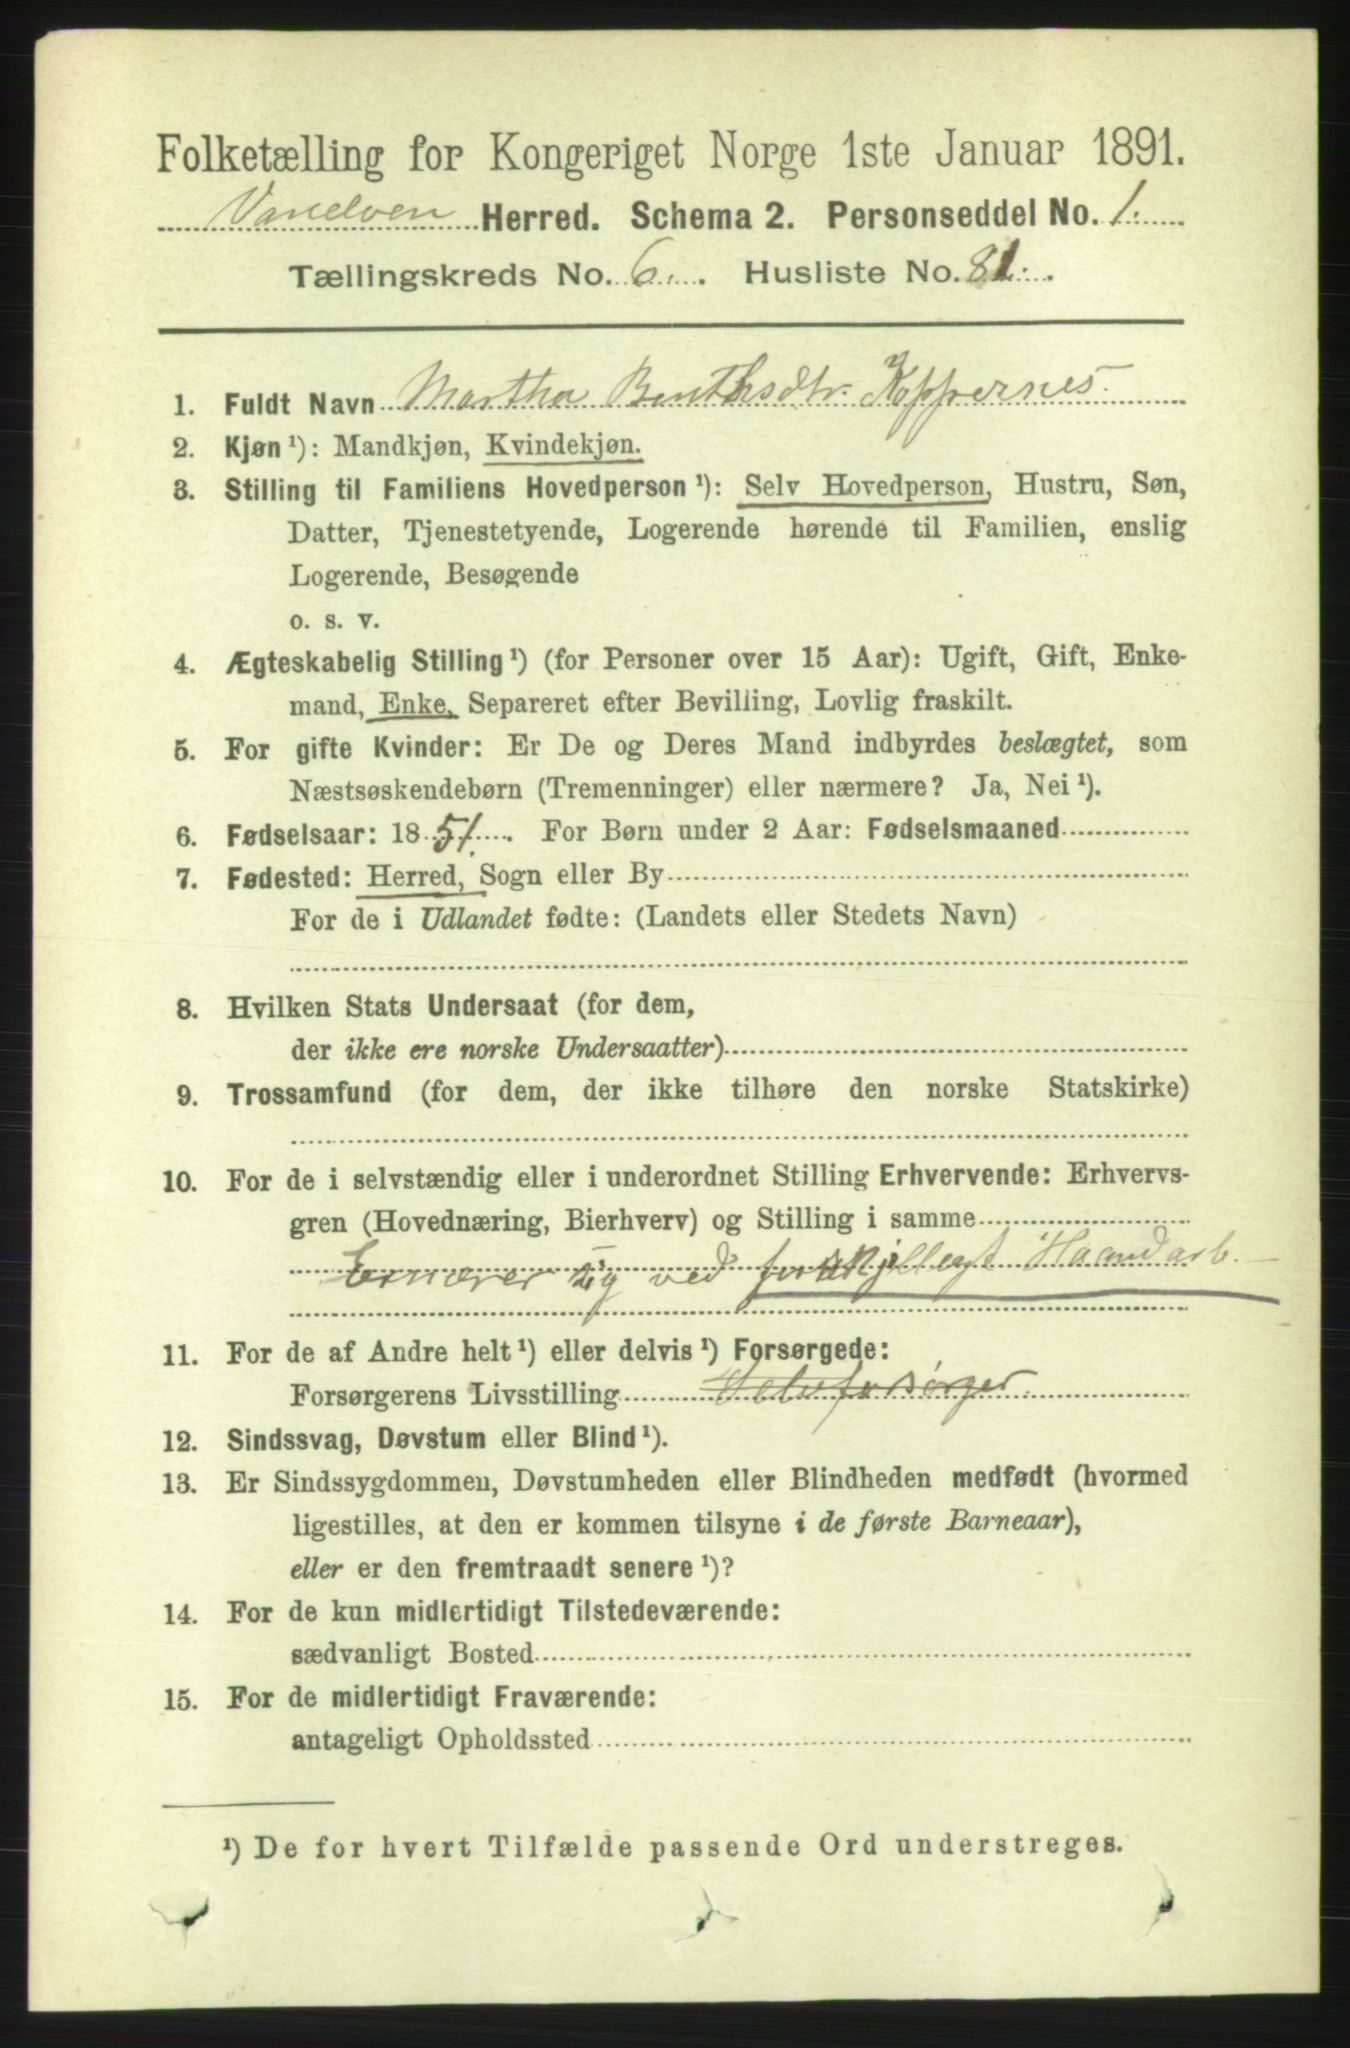 Folketælling for Kongeriget Norge 1ste Januar 1891.
Vanelven Herred. Schema 2. Personseddel No. 1.
Tællingskreds No. 6. Husliste No. 81.
1. Fuldt Navn Martha Benthsdtr. Koppernes.
2. Kjøn ¹): Mandkjøn, Kvindekjøn.
3. Stilling til Familiens Hovedperson ¹): Selv Hovedperson, Hustru, Søn,
Datter, Tjenestetyende, Logerende hørende til Familien, enslig
Logerende, Besøgende
o. s. v.
4. Ægteskabelig Stilling ¹) (for Personer over 15 Aar): Ugift, Gift, Enke-
mand, Enke, Separeret efter Bevilling, Lovlig fraskilt.
5. For gifte Kvinder: Er De og Deres Mand indbyrdes beslægtet, som
Næstsøskendebørn (Tremenninger) eller nærmere? Ja, Nei ¹).
6. Fødselsaar: 1851. For Børn under 2 Aar: Fødselsmaaned
7. Fødested: Herred, Sogn eller By
For de i Udlandet fødte: (Landets eller Stedets Navn)
8. Hvilken Stats Undersaat (for dem,
der ikke ere norske Undersaatter)
9. Trossamfund (for dem, der ikke tilhøre den norske Statskirke)
10. For de i selvstændig eller i underordnet Stilling Erhvervende: Erhvervs-
gren (Hovednæring, Bierhverv) og Stilling i samme
Ernærer sig ved forskjelligt Haandarb.
11. For de af Andre helt ¹) eller delvis ¹) Forsørgede:
Forsørgerens Livsstilling Selvforsørger.
12. Sindssvag, Døvstum eller Blind ¹).
13. Er Sindssygdommen, Døvstumheden eller Blindheden medfødt (hvormed
ligestilles, at den er kommen tilsyne i de første Barneaar),
eller er den fremtraadt senere ¹)?
14. For de kun midlertidigt Tilstedeværende:
sædvanligt Bosted
15. For de midlertidigt Fraværende:
antageligt Opholdssted
¹) De for hvert Tilfælde passende Ord understreges.